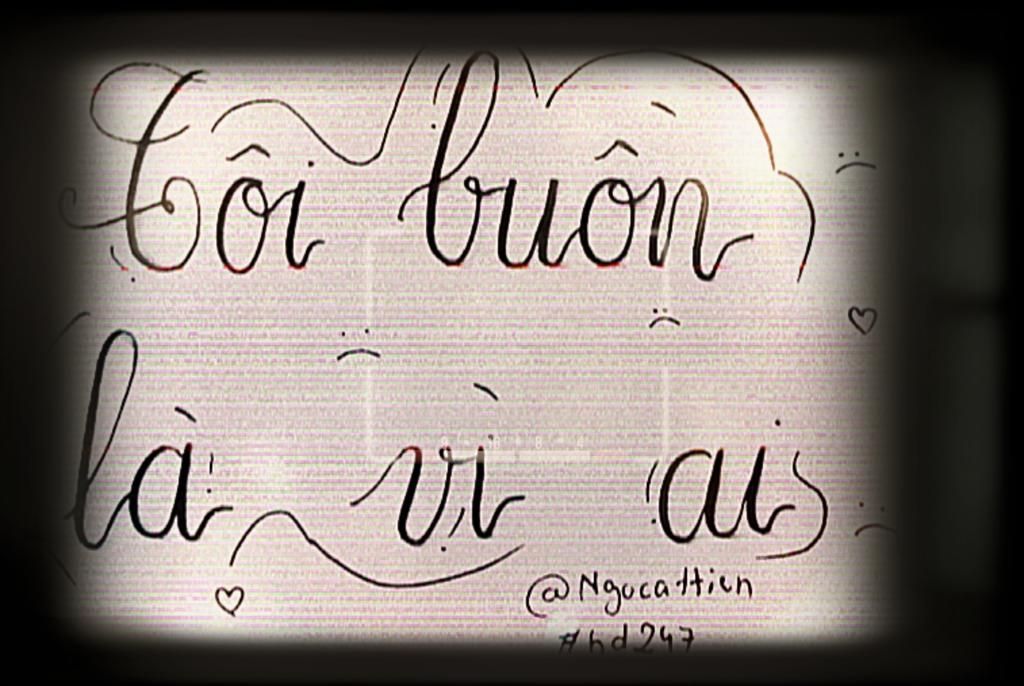 Tôi buồn
là vì ai
@Ngucattien
#hd247